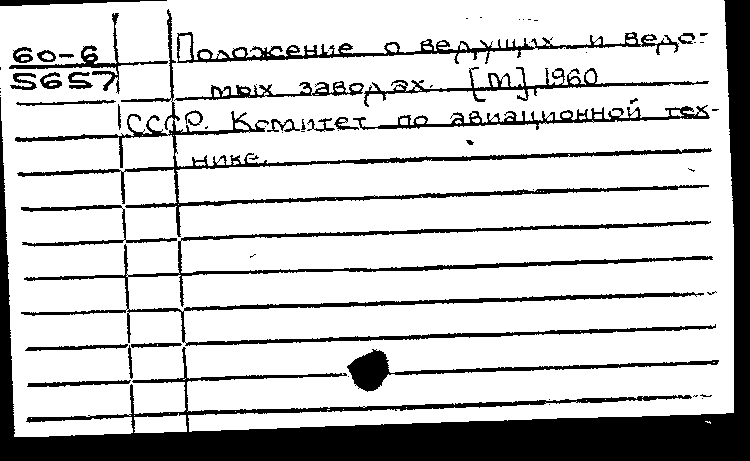 60-6
5657
Положение о ведущих и ведо-
мых заводах. [М], 1960
СССР. Комитет по авиационной тех-
нике.